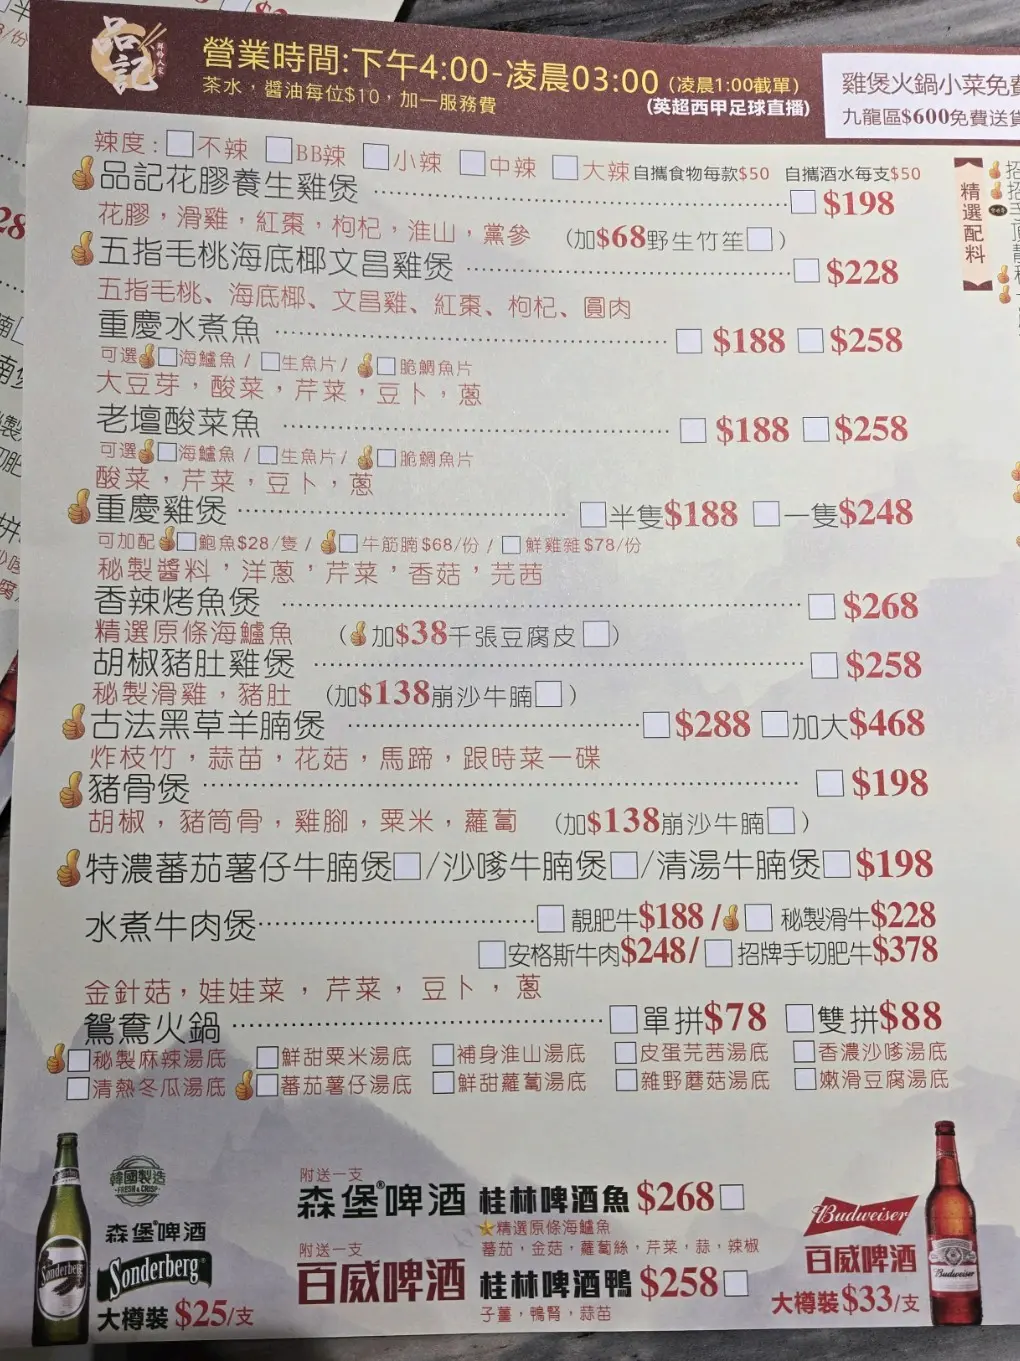 品記
營業時間:下午4:00-凌晨03:00 (凌晨1:00截單)
茶水，醬油每位$10，加一服務費
(英超西甲足球直播)
雞煲火鍋小菜免費
九龍區$600免費送貨
辣度: 不辣 BB辣 小辣 中辣 大辣 自攜食物每款$50 自攜酒水每支$50
品記花膠養生雞煲 $198
花膠，滑雞，紅棗，枸杞，淮山，黨參 (加$68野生竹笙 )
五指毛桃海底椰文昌雞煲 $228
五指毛桃、海底椰、文昌雞、紅棗、枸杞、圓肉
重慶水煮魚 $188 $258
可選 海鱸魚 / 生魚片 / 脆鯛魚片
大豆芽，酸菜，芹菜，豆卜，蔥
老壇酸菜魚 $188 $258
可選 海鱸魚 / 生魚片 / 脆鯛魚片
酸菜，芹菜，豆卜，蔥
重慶雞煲 半隻$188 一隻$248
可加配 鮑魚$28/隻 / 牛筋腩$68/份 / 鮮雞雜$78/份
秘製醬料，洋蔥，芹菜，香菇，芫茜
香辣烤魚煲 $268
精選原條海鱸魚 (加$38千張豆腐皮 )
胡椒豬肚雞煲 $258
秘製滑雞，豬肚 (加$138崩沙牛腩 )
古法黑草羊腩煲 $288 加大$468
炸枝竹，蒜苗，花菇，馬蹄，跟時菜一碟
豬骨煲 $198
胡椒，豬筒骨，雞腳，粟米，蘿蔔 (加$138崩沙牛腩 )
特濃蕃茄薯仔牛腩煲 /沙嗲牛腩煲 /清湯牛腩煲 $198
水煮牛肉煲 靚肥牛$188 / 秘製滑牛$228
安格斯牛肉$248/ 招牌手切肥牛$378
金針菇，娃娃菜，芹菜，豆卜，蔥
鴛鴦火鍋 單拼$78 雙拼$88
秘製麻辣湯底 鮮甜粟米湯底 補身淮山湯底 皮蛋芫茜湯底 香濃沙嗲湯底
清熱冬瓜湯底 蕃茄薯仔湯底 鮮甜蘿蔔湯底 雜野蘑菇湯底 嫩滑豆腐湯底
精選配料
韓國製造
FRESH & CRISP
森堡®啤酒
Sonderberg
大樽裝 $25/支
附送一支
森堡®啤酒 桂林啤酒魚 $268
精選原條海鱸魚
蕃茄，金菇，蘿蔔絲，芹菜，蒜，辣椒
附送一支
百威啤酒 桂林啤酒鴨 $258
子薑，鴨腎，蒜苗
Budweiser
百威啤酒
大樽裝$33/支
Sonderberg
Budweiser